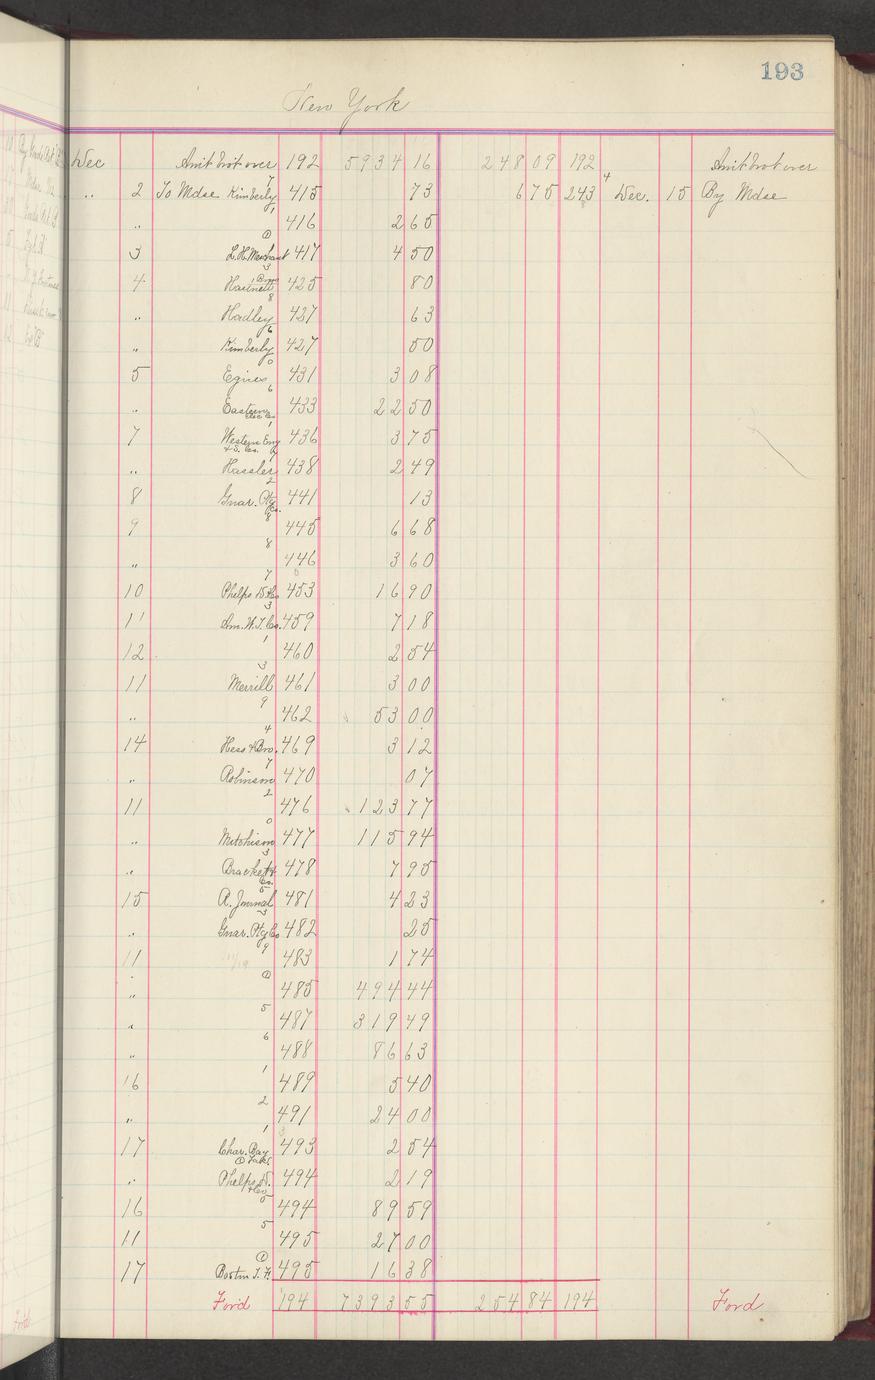 193
New York
Dec Amt brot over 192 5934 16 248 09 192 Amt brot over
„ 2 To Mdse Kimberly 7 415 73 6 75 243 4 Dec. 15 By Mdse
„ 1 416 2 65
3 L.H. Merchant ① 417 4 50
4 Hartnett Bros 3 425 80
„ Hadley 8 427 63
„ Kimberly 6 427 50
5 Egnes 0 431 3 08
„ Eastern Elec Co 6 433 22 50
7 Western Eng & S. Co. 1 436 3 75
„ Hassler 9 438 2 49
8 Gnar. Ptg Co. 2 441 13
9 8 445 6 68
„ 8 446 3 60
10 Phelps D. & Co 7 453 16 90
11 Am. W. T. Co. 3 459 7 18
12 1 460 2 54
11 Merrill 3 461 3 00
„ 9 462 53 00
14 Hess & Bro. 4 469 3 12
„ Robinson 7 470 07
11 2 476 123 77
„ Mitchison 0 477 115 94
„ Brackett & Co. 3 478 7 95
15 A. Journal 5 481 4 23
„ Gnar. Ptg Co 3 482 25
11 9 483 1 74
„ ① 485 494 44
„ 5 487 319 49
„ 6 488 86 63
16 1 489 5 40
„ 2 491 24 00
17 Char. Bay 1 493 2 54
„ Phelps D. & Co ① 494 2 19
16 0 494 89 59
11 5 495 27 00
17 Boston I. F. ① 495 16 38
Ford 194 7393 55 254 84 194 Ford